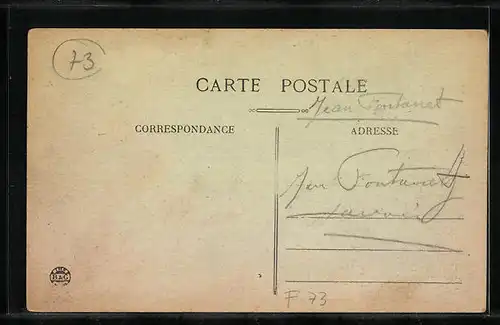 73
CARTE POSTALE
Jean Fontanet
CORRESPONDANCE
ADRESSE
Jean Fontanet
Savoie
F 73